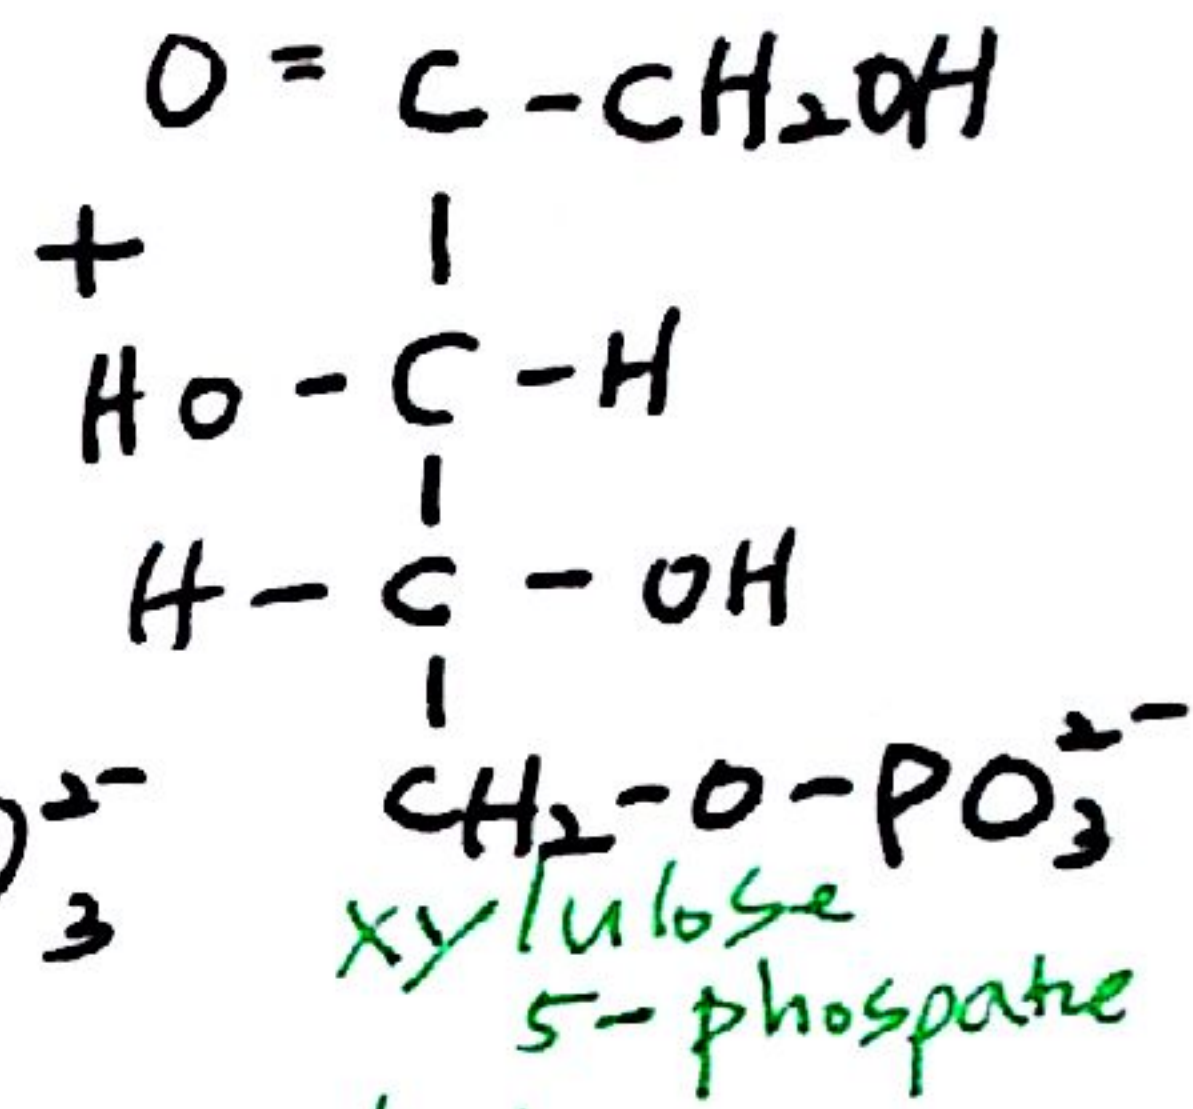 O = C - CH₂OH
+
|
HO - C - H
|
H - C - OH
|
CH₂ - O - PO₃²⁻
2-
3
xylulose
5-phospate